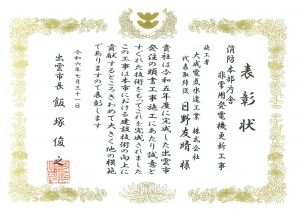 表彰状
消防本部庁舎
非常用発電機更新工事
施工者
大成電気水道工業株式会社
代表取締役 日野友晴様
貴社は令和五年度に完成した出雲市
発注の頭書工事施工にあたり誠意と
すぐれた技術をもってこれを完成されました
この工事は本市における建設技術の向上に
貢献するところきわめて大きく他の模範
でありますので表彰します
令和六年七月三十一日
出雲市長 飯塚俊之